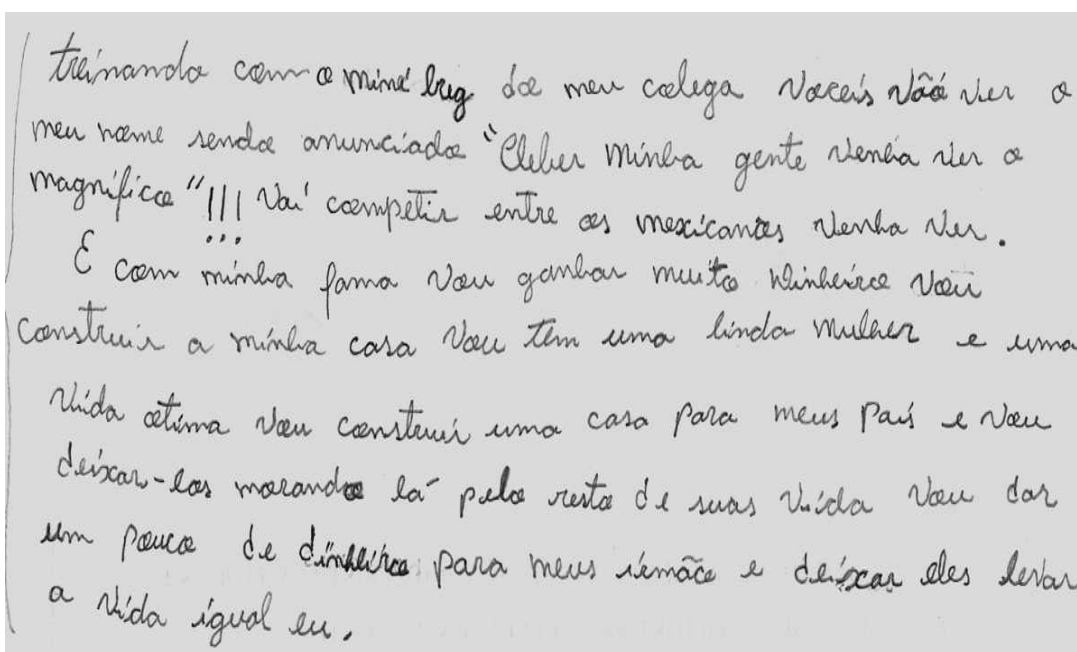 treinando com o mine brig do meu colega voceis vão ver o
meu nome sendo anunciado "Cleber minha gente venha ver o
magnifico"!!! Vai competir entre os mexicanos venha ver.
E com minha fama vou ganhar muito dinheiro vou
construir a minha casa vou têm uma linda mulher e uma
vida otima vou construir uma casa para meus pais e vou
deixar-los morando lá pelo resto de suas vida vou dar
um pouco de dinheiro para meus irmão e deixar eles levar
a vida igual eu.